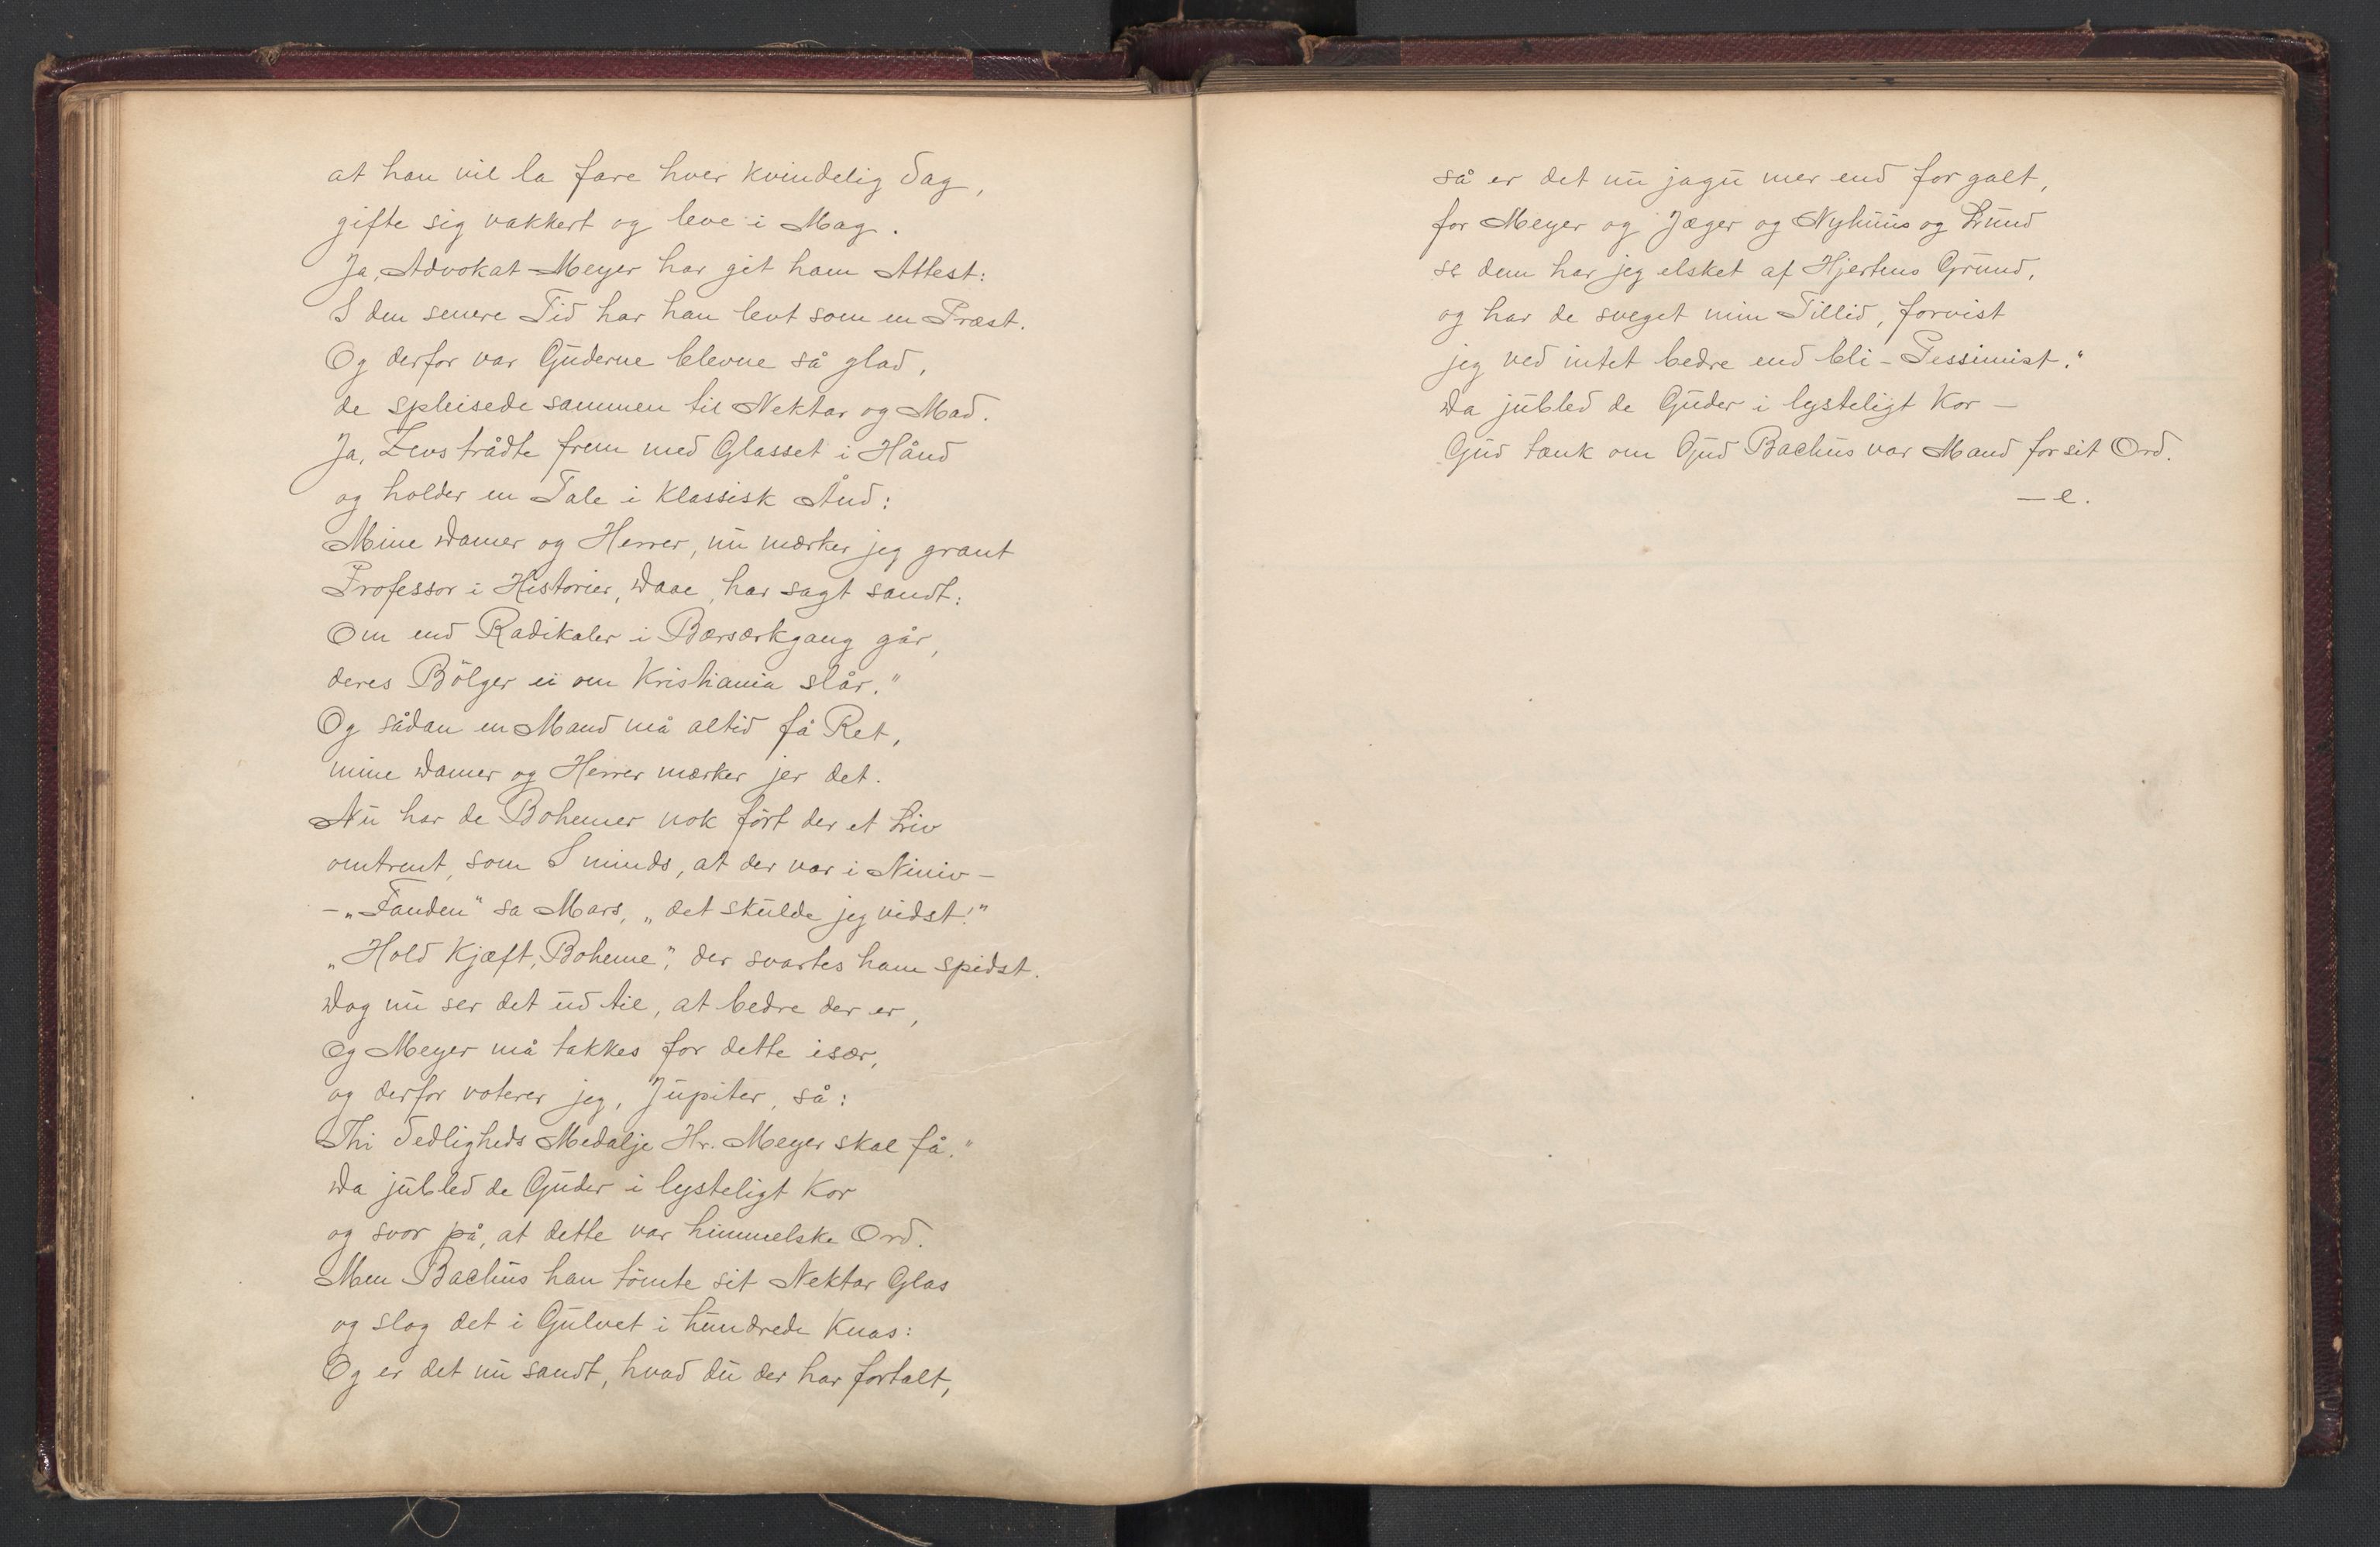 at han vil la fare hver kvindelig Sag,
gifte sig vakkert og leve i Mag.
Ja, Advokat Meyer har git ham Attest:
I den senere Tid har han levt som en Præst.
Og derfor var Guderne blevne så glad,
de spleisede sammen til Nektar og Mad.
Ja, Zevs trådte frem med Glasset i Hånd
og holder en Tale i klassisk Ånd:
Mine Damer og Herrer, nu mærker jeg grant
Professor i Historier, Daae, har sagt sandt:
Om end Radikaler i Bærsærkgang går,
deres Bölger ei om Kristiania slår."
Og sådan en Mand må altid få Ret,
mine Damer og Herrer mærker jer det.
Nu har de Bohemer nok fört der et Liv
omtrent, som I minds, at der var i Niniv –
– „Fanden" sa Mars, „det skulde jeg vidst!"
„Hold Kjæft, Boheme", der svartes ham spidst.
Dog nu ser det ud til, at bedre der er,
Og Meyer må takkes for dette især,
og derfor voterer jeg, Jupiter, så:
Thi Sedligheds Medalje Hr. Meyer skal få."
Da jubled de Guder i lysteligt Kor
og svor på, at dette var himmelske Ord.
Men Bachus han tömte sit Nektar Glas
og slog det i Gulvet i hundrede Knas:
Og er det nu sandt, hvad du der har fortalt,
så er det nu jagu mer end for galt,
for Meyer og Jæger og Nyhuus og Lund
se dem har jeg elsket af Hjertens Grund,
og har de sveget min Tillid, forvist
jeg ved intet bedre end bli – Pessimist."
Da jubled de Guder i lysteligt Kor –
Gud tænk om Gud Bachus var Mand for sit Ord.
— e.